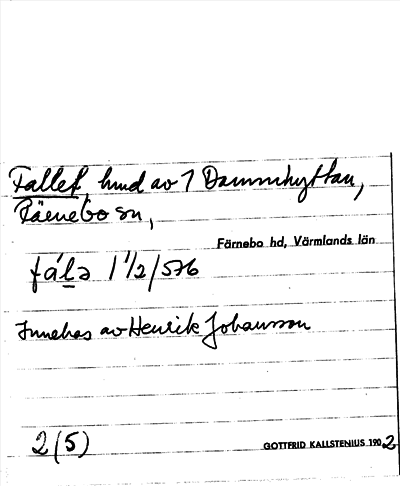 Fallet, hmd av 1 Dammhyttan,
Färnebo sn,
Färnebo hd, Värmlands län
fáḷa 1 1/2/576
Innehas av Henrik Johansson
2(5)
GOTTFRID KALLSTENIUS 1902